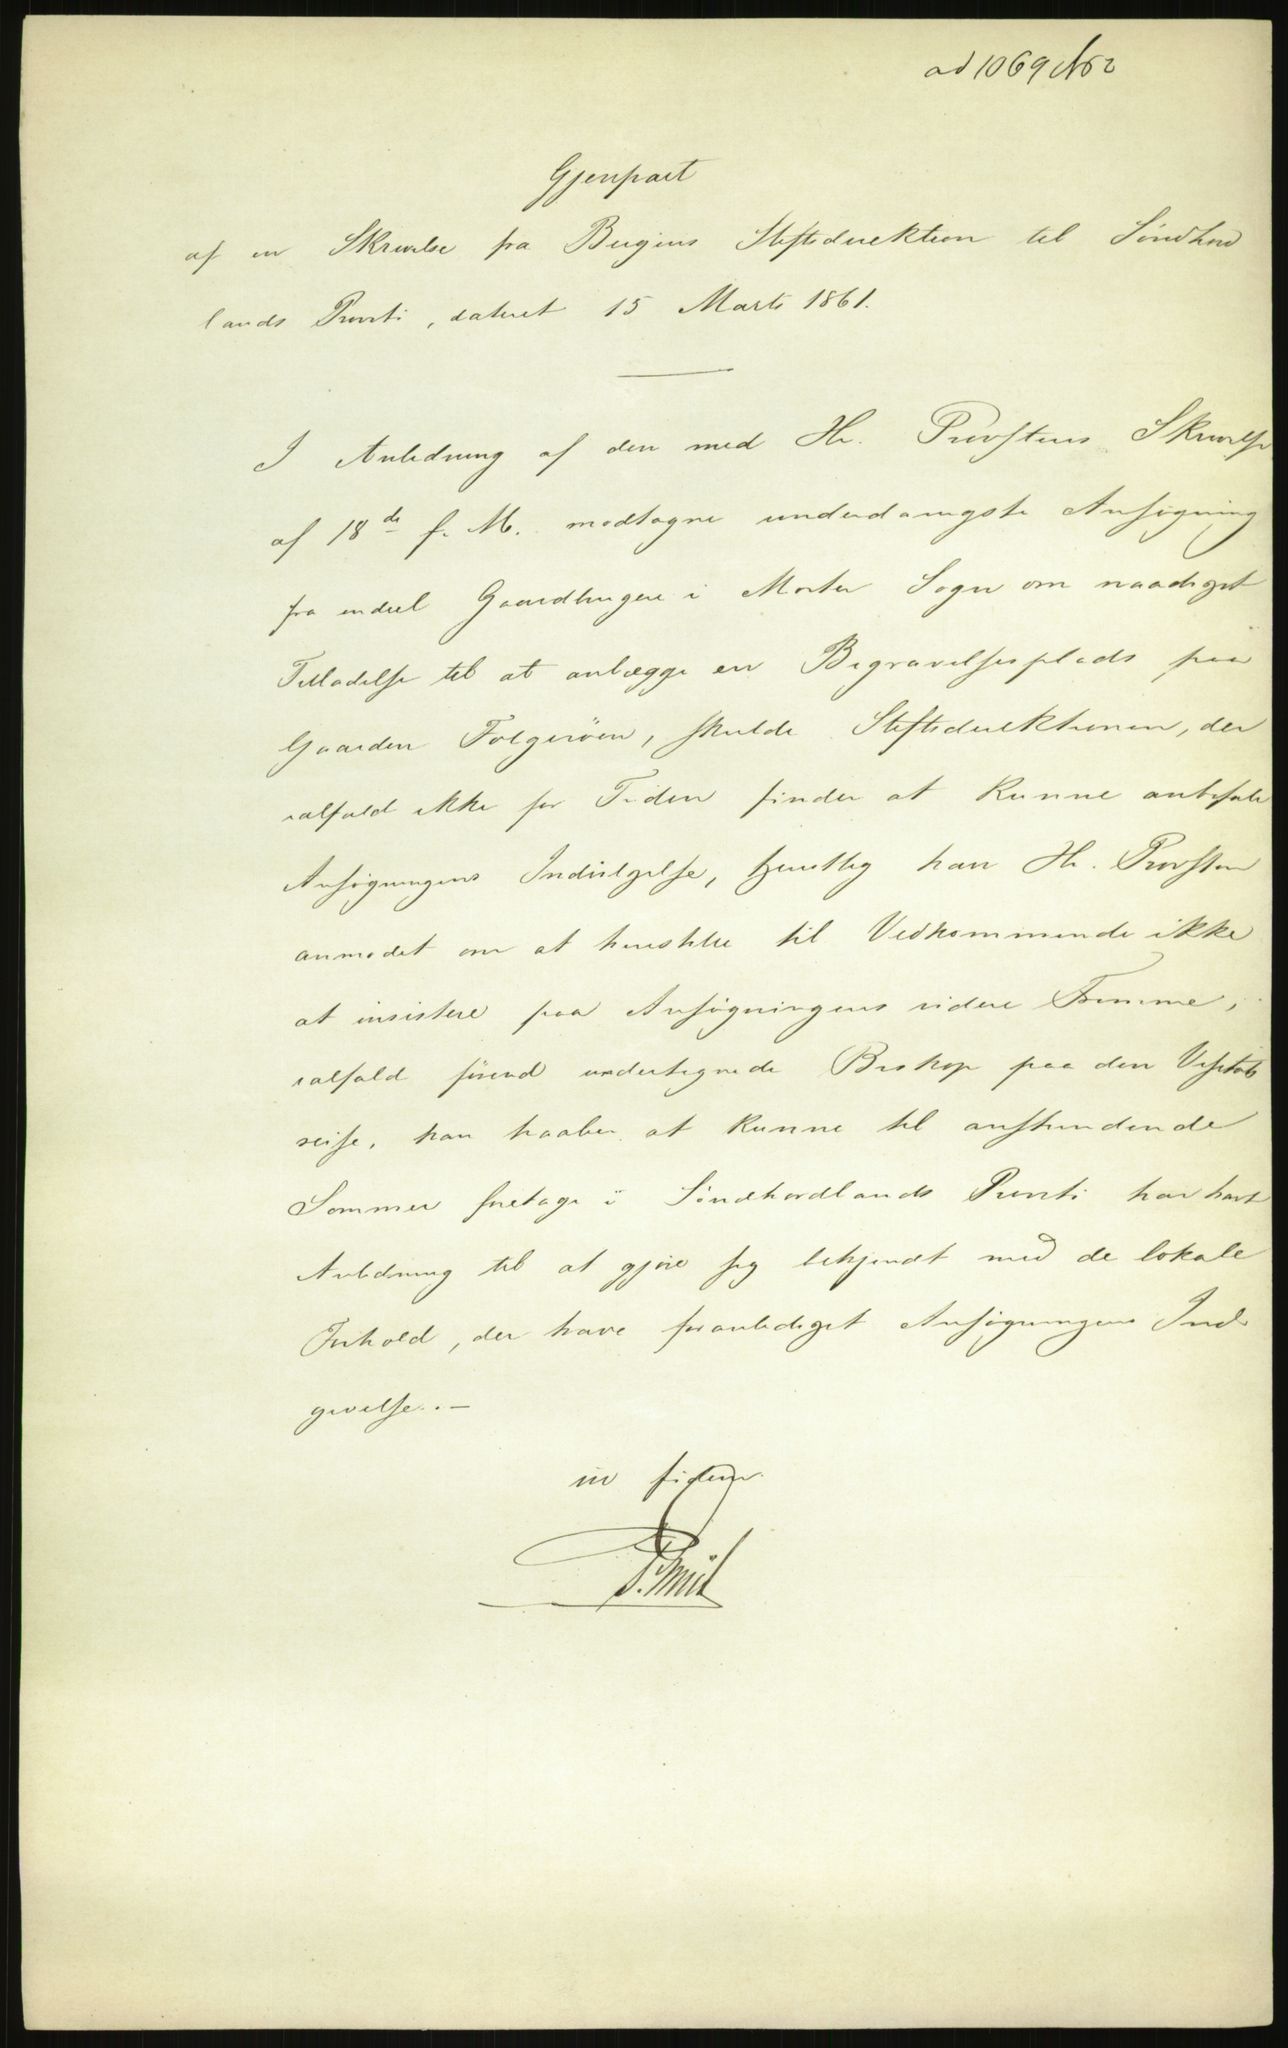 ad 1069 No 2
Gjenpart
af en Skrivelse fra Bergens Stiftsdirektion til Söndhord
lands Provsti, dateret 15 Marts 1861.
I Anledning af den med Hr. Provstens Skrivelse
af 18de f. M. modtagne underdanigste Ansøgning
fra endeel Gaardbrugere i Moster Sogn om naadigst
Tilladelse til at anlægge en Begravelsesplads paa
Gaarden Folgeröen, skulde Stiftsdirektionen, der
ialfald ikke for Tiden finder at kunne anbefale
Ansøgningens Indvilgelse, tjenstlig have Hr. Provsten
anmodet om at henstille til Vedkommende ikke
at insistere paa Ansøgningens videre Fremme,
ialfald förend undertegnede Biskop paa den Visitats
reise, han haaber at kunne til anstundende
Sommer foretage i Söndhordlands Provsti har havt
Anledning til at gjöre sig bekjendt med de lokale
Forhold, der have foranlediget Ansøgningens Ind
givelse. —
in fidem